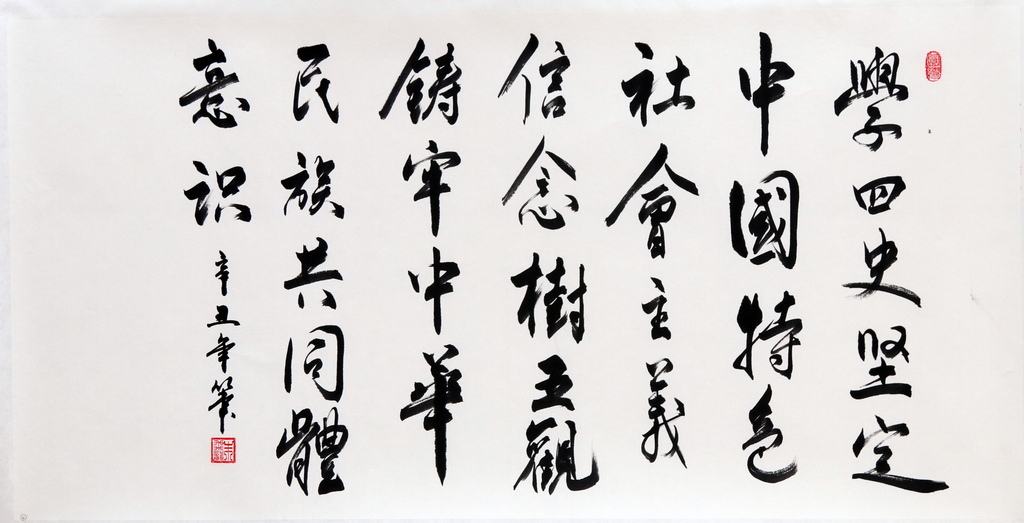 學四史堅定
中國特色
社會主義
信念樹五觀
鑄牢中華
民族共同體
意识
辛丑年筆